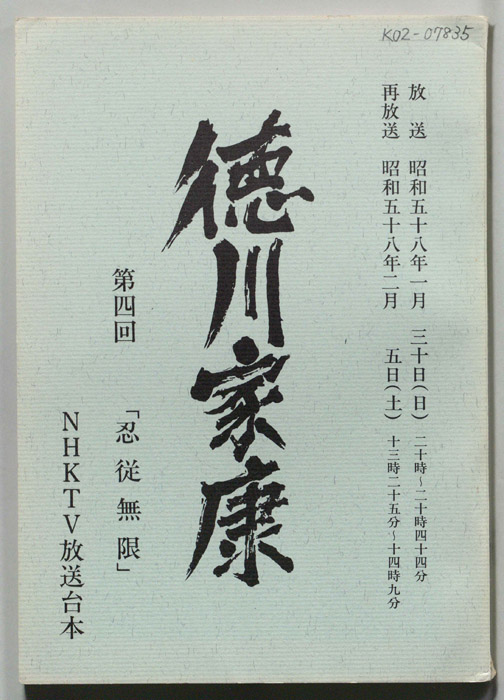 K02-07835
放　送　昭和五十八年一月　三十日(日)　二十時～二十時四十四分
再放送　昭和五十八年二月　　五日(土)　十三時二十五分～十四時九分
徳川家康
第四回　「忍従無限」
NHKTV放送台本